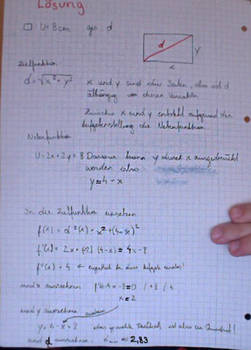 Lösung
U=8cm ges: d
y
x
Zielfunktion
d = √x² + y² x und y sind die Seiten, also ist d
abhängig von diesen Variablen
Zwischen x und y entsteht aufgrund der
Aufgabenstellung die Nebenfunktion.
Nebenfunktion
U = 2x + 2y = 8 Daraus kann y durch x ausgedrückt
werden also:
y = 4 - x
In die Zielfunktion einsetzen
f(x) = d²(x) = x² + (4-x)²
f'(x) = 2x + (-2)(4-x) = 4x - 8
f''(x) = 4
und x ausrechnen f'(x) = 0 | +8 | :4
x = 2
und y ausrechnen
y = 4 - x = 2 das Rechteck ist also ein Quadrat!
und d ausrechnen: = 2,83